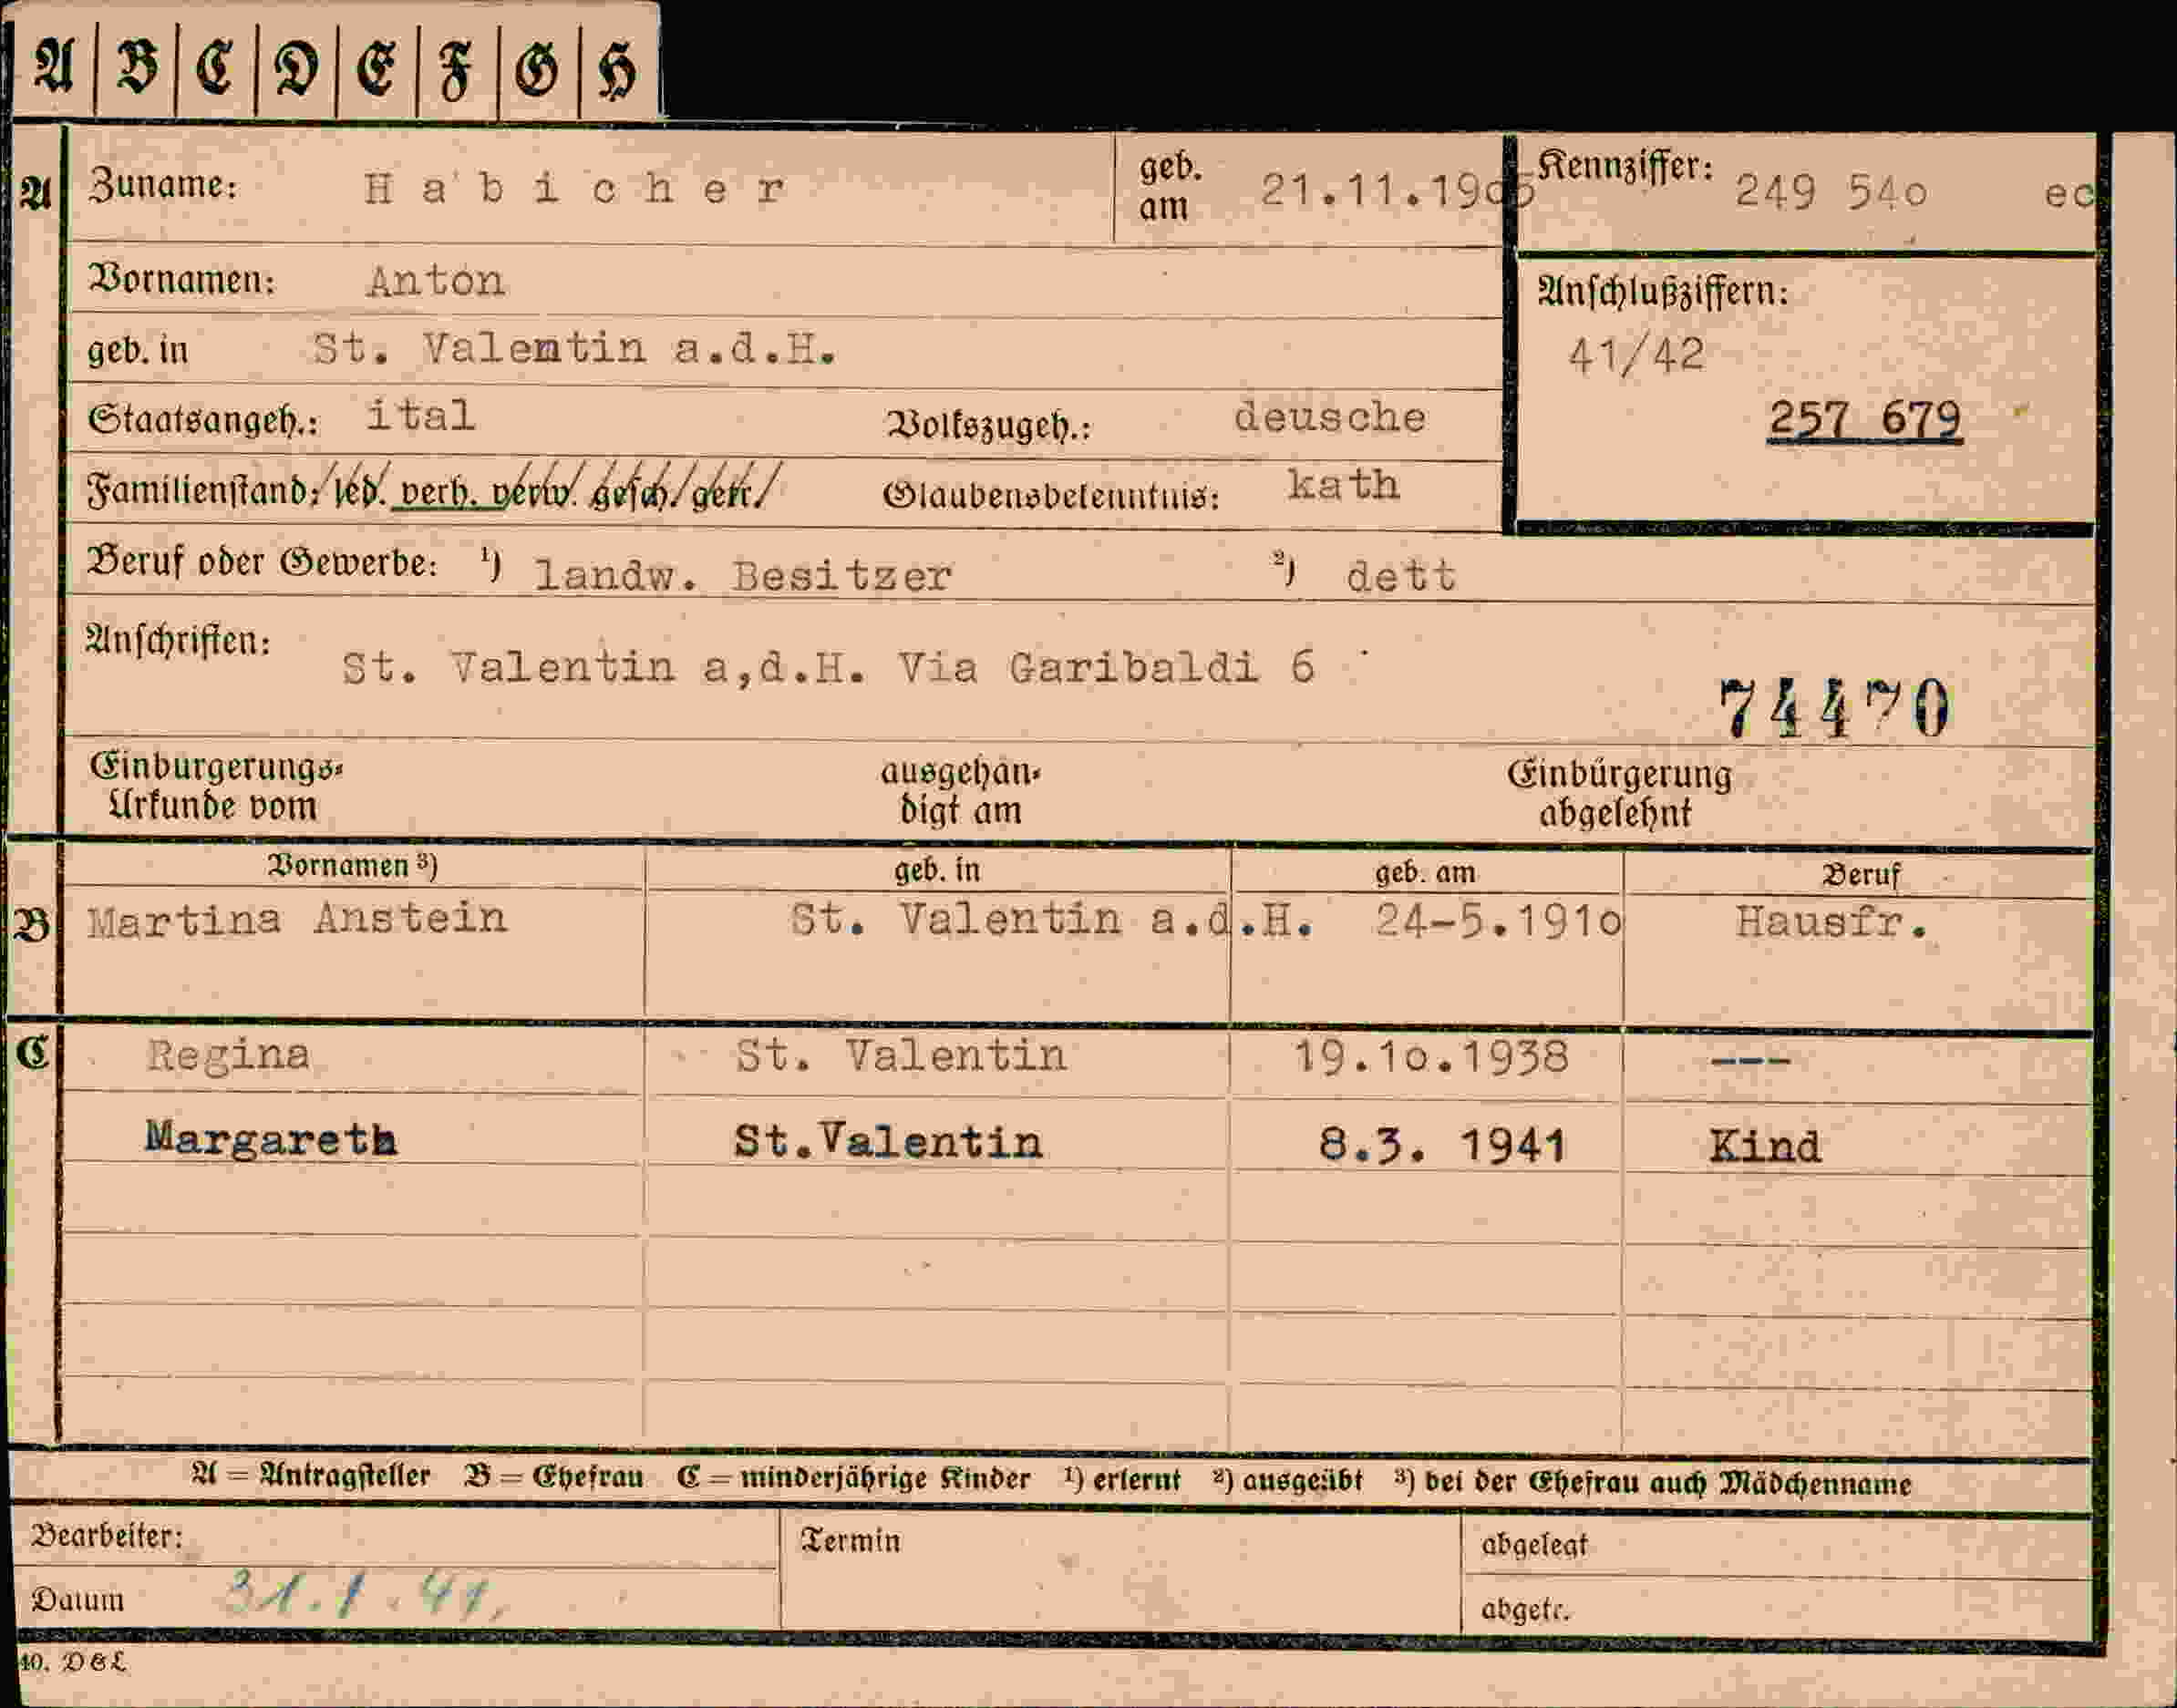 A | B | C | D | E | F | G | H
A Zuname: Habicher geb. am 21.11.1905 Kennziffer: 249 54o ec
Vornamen: Anton
Anschlußziffern:
geb. in St. Valentin a.d.H.
41/42
Staatsangeh.: ital Volkszugeh.: deusche
257 679
Familienstand: led. verh. verw. gesch. getr. Glaubensbekenntnis: kath
Beruf oder Gewerbe: ¹) landw. Besitzer ²) dett
Anschriften: St. Valentin a,d.H. Via Garibaldi 6
74470
Einbürgerungs- ausgehän- Einbürgerung
Urkunde vom digt am abgelehnt
Vornamen ³) geb. in geb. am Beruf
B Martina Anstein St. Valentin a.d.H. 24-5.191o Hausfr.
C Regina St. Valentin 19.1o.1938 ---
Margareth St.Valentin 8.3. 1941 Kind
A = Antragsteller B = Ehefrau C = minderjährige Kinder ¹) erlernt ²) ausgeübt ³) bei der Ehefrau auch Mädchenname
Bearbeiter: Termin abgelegt
Datum 31.1.41, abgetr.
40. D&L